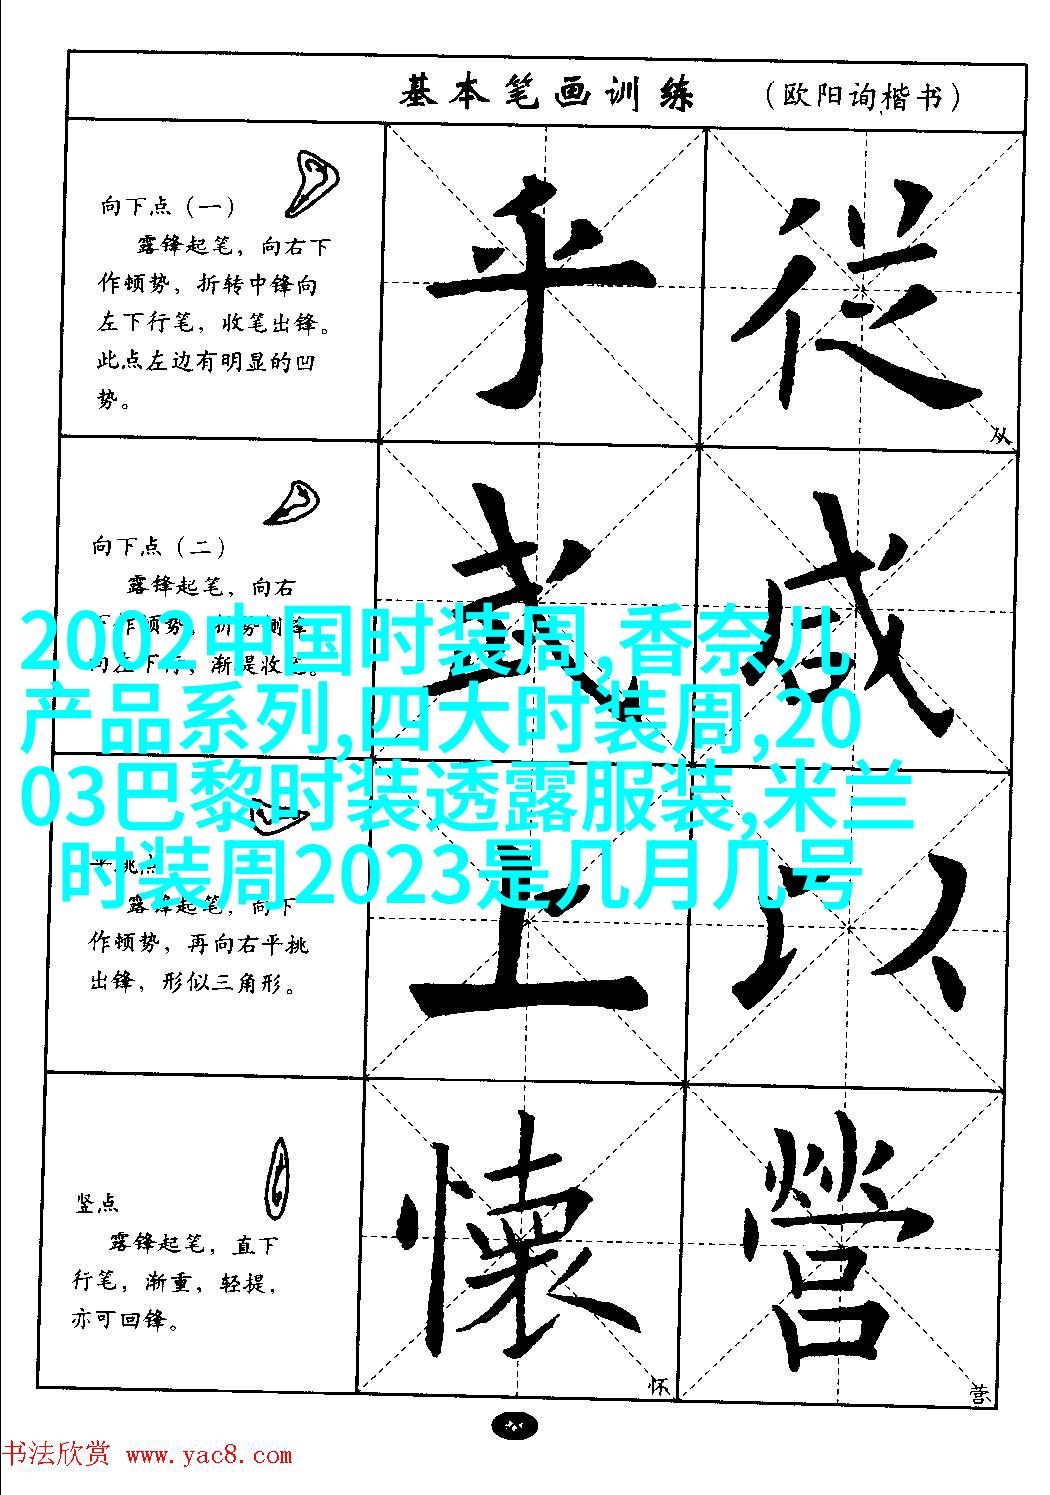 基本笔画训练 （欧阳询楷书）
向下点（一）
露锋起笔，向右下
作顿势，折转中锋向
左下行笔，收笔出锋。
此点左边有明显的凹
势。
乎 從
从
向下点（二）
露锋起笔，向右
下作顿势，折势侧锋
向左下行，渐提收笔。
2002中国时装周,香奈儿
产品系列,四大时装周,20
03巴黎时装透露服装,米兰
时装周2023是几月几号
哉 咸
平挑点
露锋起笔，向下
作顿势，再向右平挑
出锋，形似三角形。
上 以
竖点
露锋起笔，直下
行笔，渐重，轻提，
亦可回锋。
懷 營
怀 营
书法欣赏 www.yac8.com